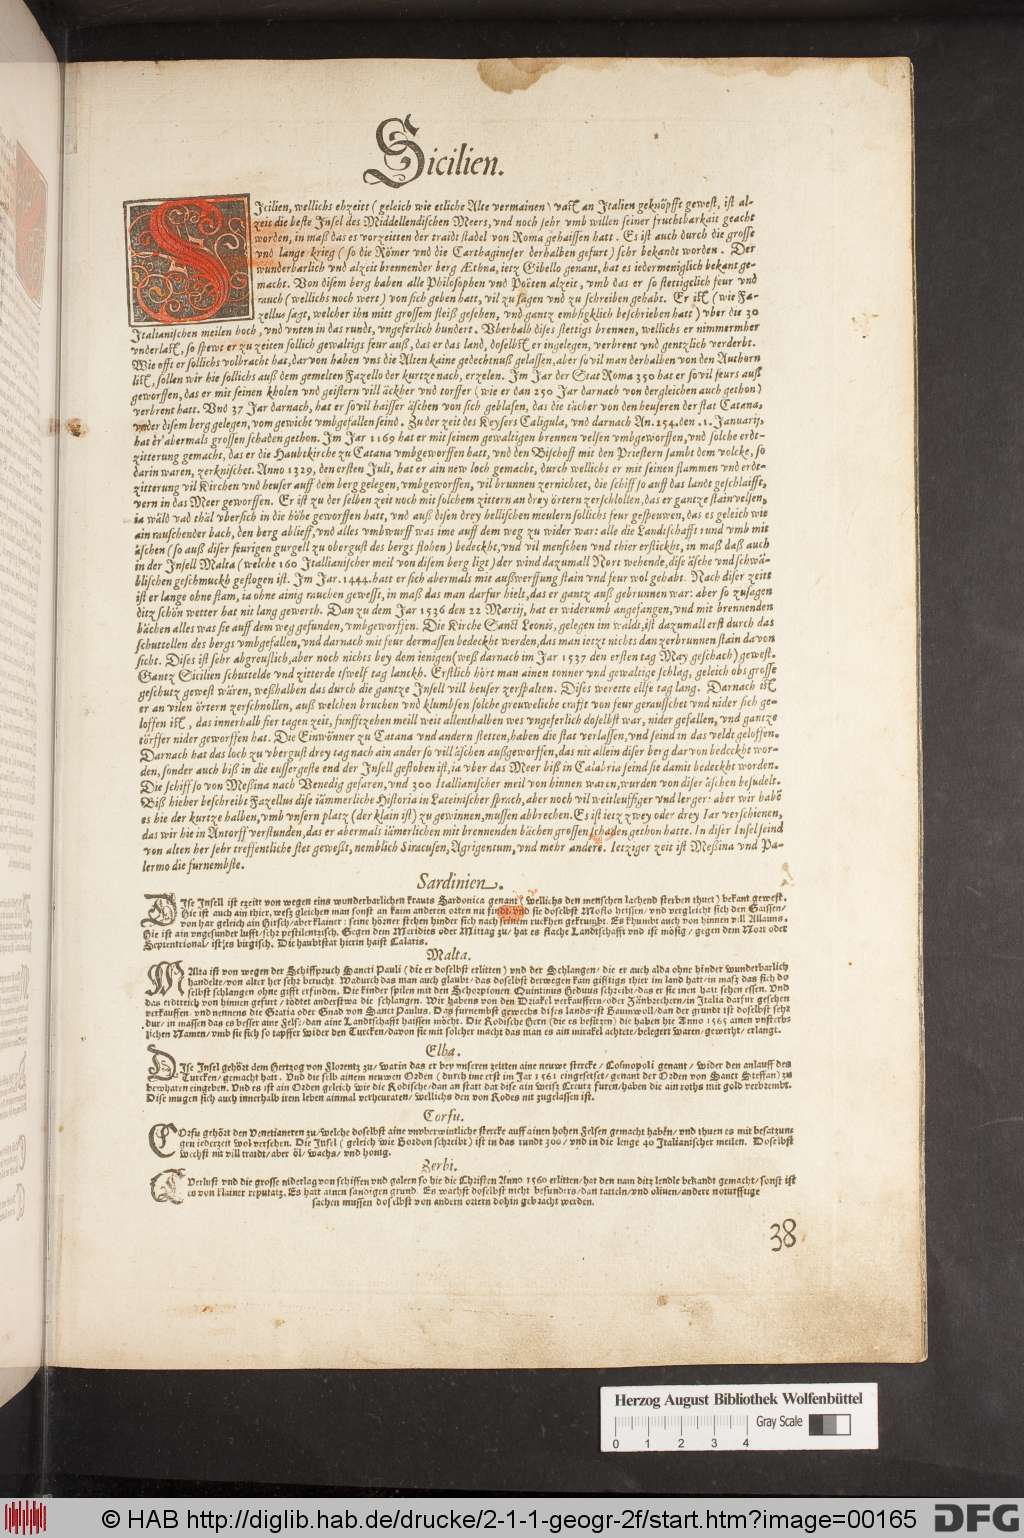 Sicilien.
SIcilien, wellichs ehzeitt (geleich wie etliche Alte vermainen) vast an Italien geknöpfft gewest, ist al-
zeit die beste Insel des Middellendischen Meers, vnd noch sehr vmb willen seiner fruchtbarkait geacht
worden, in maß das es vorzeitten der traidt stadel von Roma gehaissen hatt. Es ist auch durch die grosse
vnd lange krieg (so die Römer vnd die Carthagineser derhalben gefurt) sehr bekandt worden. Der
wunderbarlich vnd alzeit brennender berg Æthna, ietz Gibello genant, hat es iedermeniglich bekant ge-
macht. Von disem berg haben alle Philosophen vnd Poëten alzeit, vmb das er so stettigclich feur vnd
rauch (wellichs noch wert) von sich geben hatt, vil zu sagen vnd zu schreiben gehabt. Er ist (wie Fa-
zellus sagt, welcher ihn mitt grossem fleiß gesehen, vnd gantz embsigklich beschrieben hatt) vber die 30
Italianischen meilen hoch, vnd vnten in das rundt, vngeferlich hundert. Vberhalb dises stettigs brennen, wellichs er nimmermher
vnderlast, so spewt er zu zeiten sollich gewaltigs feur auß, das er das land, doselbst er ingelegen, verbrent vnd gentzlich verderbt.
Wie offt er sollichs volbracht hat, dar von haben vns die Alten kaine gedechtnuß gelassen, aber so vil man derhalben von den Authorn
list, sollen wir hie sollichs auß dem gemelten Fazello der kurtze nach, erzelen. Im Jar der Stat Roma 350 hat er so vil feurs auß
geworffen, das er mit seinen kholen vnd geistern vill äckher vnd torffer (wie er dan 250 Jar darnach von dergleichen auch gethon)
verbrent hatt. Vnd 37 Jar darnach, hat er so vil haisser äschen von sich geblasen, das die tächer von den heuseren der stat Catana,
vnder disem berg gelegen, vom gewicht vmbgefallen seind. Zu der zeit des Keysers Caligula, vnd darnach An. 254. den .1. Januarij,
hat er abermals grossen schaden gethon. Im Jar 1169 hat er mit seinem gewaltigen brennen velsen vmbgeworffen, vnd solche erdt-
zitterung gemacht, das er die Haubtkirche zu Catana vmbgeworffen hatt, vnd den Bischoff mit den Priestern sambt dem volcke, so
darin waren, zerknischet. Anno 1329, den ersten Juli, hat er ain new loch gemacht, durch wellichs er mit seinen flammen vnd erdt-
zitterung vil Kirchen vnd heuser auff dem berg gelegen, vmbgeworffen, vil brunnen zernichtet, die schiff so auff das landt geschlaifft,
vern in das Meer geworffen. Er ist zu der selben zeit noch mit solchem zittern an drey örtern zerschlossen, das er gantze stain velsen,
ia wäld vnd thäl vbersich in die höhe geworffen hatt, vnd auß disen drey hellischen meulern sollichs feur gespeuwen, das es geleich wie
ain rauschender bach, den berg ablieff, vnd alles vmbwurff was ime auff dem weg zu wider war: alle die Landtschafft rund vmb mit
äschen (so auß diser feurigen gurgell zu obergust des bergs flohen) bedeckht, vnd vil menschen vnd thier ersticht, in maß daß auch
in der Insell Malta (welche 160 Itallianischer meil von disem berg ligt) der wind dazumall Nort wehende, dise äsche vnd schwä-
blischen geschmuckh geflogen ist. Im Jar. 1444. hatt er sich abermals mit außwerffung stain vnd feur wol gehabt. Nach diser zeitt
ist er lange ohne flam, ia ohne ainig rauchen gewesst, in maß das man darfur hielt, das er gantz auß gebrunnen war: aber so zusagen
ditz schön wetter hat nit lang gewerth. Dan zu dem Jar 1536 den 22 Martij, hat er widerumb angefangen, vnd mit brennenden
bächen alles was sie auff dem weg gefunden, vmbgeworffen. Die Kirche Sanct Leonis, gelegen im waldt, ist dazumall erst durch das
schuttellen des bergs vmbgefallen, vnd darnach mit feur dermassen bedeckt werden, das man ietzt nichts dan zerbrunnen stain da von
sicht. Dises ist sehr abgreuslich, aber noch nichts bey dem ienigen (weß darnach im Jar 1537 den ersten tag May geschach) gewest.
Gantz Sicilien schuttelde vnd zitterde tswelf tag lanckh. Erstlich hört man ainen tonner vnd gewaltige schlag, geleich obs grosse
geschutz gewest wären, weßhalben das durch die gantze Insell vill heuser zerspalten. Dises werette ellfe tag lang. Darnach ist
er an vilen örtern zerschnollen, auß welchen bruchen vnd klumbsen solche greuweliche crafft von feur gerausschet vnd nider sich ge-
loffen ist, das innerhalb fier tagen zeit, funfftzehen meill weit allenthalben wes vngeferlich doselbst war, nider gefallen, vnd gantze
törffer nider geworffen hat. Die Einwönner zu Catana vnd andern stetten, haben die stat verlassen, vnd seind in das veldt geloffen.
Darnach hat das loch zu vbergust drey tag nach ain ander so vill äschen außgeworffen, das nit allein diser berg dar von bedeckt wor-
den, sonder auch biß in die eussergeste end der Insell gestoben ist, ia vber das Meer biß in Calabria seind sie damit bedeckht worden.
Die schiff so von Messina nach Venedig gefaren, vnd 300 Itallianischer meil von hinnen waren, wurden von diser äschen besudelt.
Biß hieher beschreibt Fazellus dise iämmerliche Historia in Lateinischer sprach, aber noch vil weitleuffiger vnd lerger: aber wir habē
es hie der kurtze halben, vmb vnsern platz (der klain ist) zu gewinnen, mussen abbrechen. Es ist ietz zwey oder drey Jar verschienen,
das wir hie in Antorff verstunden, das er abermals iämerlichen mit brennenden bächen grossen schaden gethon hatte. In diser Insel seind
von alten her sehr treffentliche stet geweßt, nemblich Siracusen, Agrigentum, vnd mehr andere. Ietziger zeit ist Messina vnd Pa-
lermo die furnembste.
Sardinien.
DIse Insell ist ezeitt von wegen eins wunderbarlichen krauts Sardonica genant (wellichs den menschen lachend sterben thuet) bekant gewest.
Hie ist auch ain thier, wesz gleichen man sonst an kaim anderen orten nit findt, vnd sie doselbst Moflo heissen/ vnd vergleicht sich den Gaissen/
von har geleich ain Hirsch/ aber klainer: seine hörner stehen hinder sich nach seinem ruckhen gekrumbt. Es khumbt auch von hinnen vill Allauns.
Hie ist ain vngesunder lufft/ sehr pestilentzisch. Gegen dem Meridies oder Mittag zu/ hat es flache Landtschafft vnd ist mösig/ gegen dem Nort oder
Septentrional/ ist es birgisch. Die haubtstat hierin haist Calaris.
Malta.
MAlta ist von wegen der Schiffpruch Sancti Pauli (die er doselbst erlitten) vnd der Schlangen/ die er auch alda ohne hinder wunderbarlich
handelte/ von alter her sehr berucht. Wadurch das man auch glaubt/ das doselbst derwegen kain gifftigs thier im land hatt: in masz das sich do
selbst schlangen ohne gifft erfinden. Die kinder spilen mit den Schorpionen. Quintinus Heduus schreibt/ das er sie inen hatt sehen essen. Vnd
das erdtreich von hinnen gefurt/ tödtet anderstwa die schlangen. Wir habens von den Driakel verkauffern/ oder Zänbrechern/ in Italia darfur gesehen
verkauffen/ vnd nennens die Gratia oder Gnad von Sanct Paulus. Das furnembst gewechs dises lands ist Baumwoll/ dan der grundt ist doselbst sehr
dur/ in massen das es besser aine Fels/ dan aine Landtschafft haissen möcht. Die Rodische Hern (die es besitzen) die haben hie Anno 1565 ainen vnsterb-
lichen Namen/ vmb sie sich so tapffer wider den Turcken/ davon sie mit solcher macht das man es ain mirakel achtete/ belegert waren/ gewerht/ erlangt.
Elba.
DIse Insel gehört dem Hertzog von Florentz zu/ warin das er bey vnseren zeitten aine neuwe stercke/ Cosmopoli genant/ wider den anlauff des
Turcken/ gemacht hatt. Vnd die selb ainem neuwen Orden (durch ime erst im Jar 1561 eingesetzet/ genant der Orden von Sanct Steffan) zu
bewharen eingeben. Vnd es ist ain Orden geleich wie die Rodische/ dan an statt dat dise ain weisz Creutz furen/ haben die ain roths mit gold verbremt.
Dise mugen sich auch innerhalb irem leben ainmal verheuraten/ wellichs den von Rodes nit zugelassen ist.
Corfu.
COrfu gehört den Venetianeren zu/ welche doselbst aine vnvberwintliche stercke auff ainen hohen Felsen gemacht haben/ vnd thuen es mit besatzun-
gen iederzeit wol versehen. Die Insel (geleich wie Bordon schreibt) ist in das rundt 300/ vnd in die lenge 40 Italianischer meilen. Doselbst
wechst nit vill traidt/ aber öl/ wachs/ vnd honig.
Zerbi.
Verlust vnd die grosse niderlag von schiffen vnd galern so hie die Christen Anno 1560 erlitten/ hat den nam ditz lendle bekandt gemacht/ sonst ist
es von klainer reputatz. Es hatt ainen sandigen grund. Es wachst doselbst nicht besunders/ dan tatteln/ vnd oliuen/ andere notturfftige
sachen mussen doselbst von andern ortern dohin gebracht werden.
38
Herzog August Bibliothek Wolfenbüttel
Gray Scale
0 1 2 3 4
© HAB http://diglib.hab.de/drucke/2-1-1-geogr-2f/start.htm?image=00165
DFG